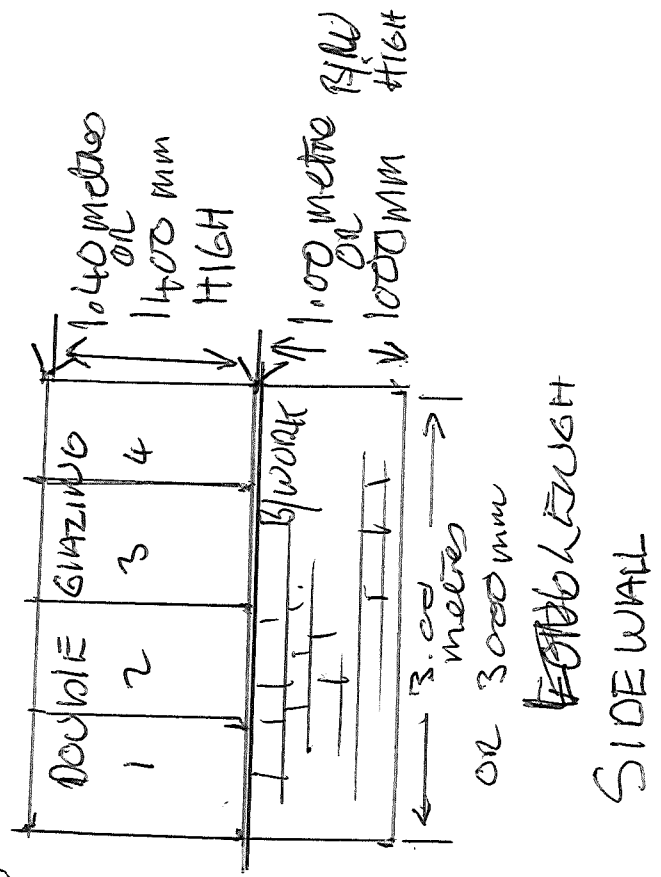 DOUBLE GLAZING
1 2 3 4
1.40 metres
OR
1400 mm
HIGH
B/WORK
1.00 metre
OR
1000 MM
HIGH
3.00
metres
OR 3000 mm
LENGH
SIDE WALL